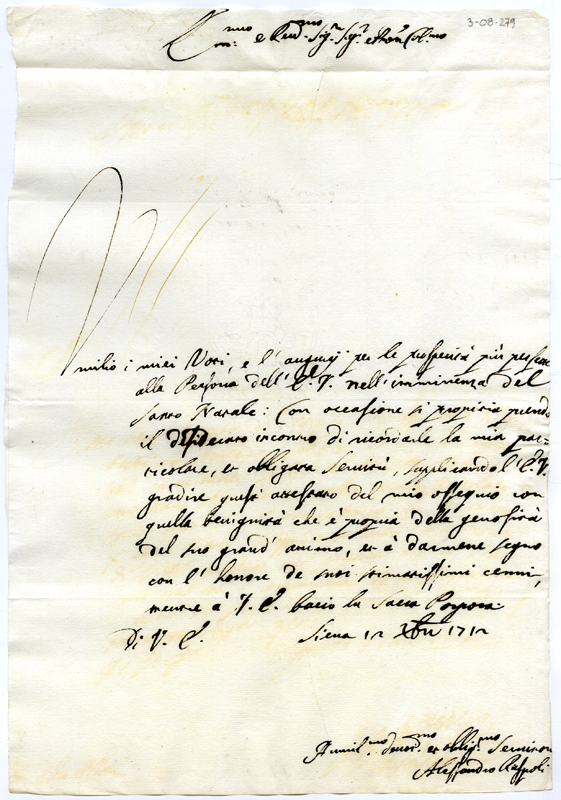 3-08-279
Em:mo e Rev:mo Sig:r Sig:r e Pron Col:mo
Umilio i miei Voti, e l'augurij per le prosperità più perfette
alla Persona dell'E. V. nell'imminenza del
Santo Natale: Con occasione sì propizia prendo
il desiderato incontro di ricordarle la mia par=
ticolare, et obligata Servitù, supplicando l'E. V.
gradire questo attestato del mio ossequio con
quella benignità che è propria della generosità
del suo grand' animo, et à darmene segno
con l'honore de suoi stimatissimi cenni,
mentre à V. E. bacio la Sacra Porpora
Di V. E. Siena 12 Xbre 1712
Humil:mo devot:mo et oblig:mo Servitore
Alessandro